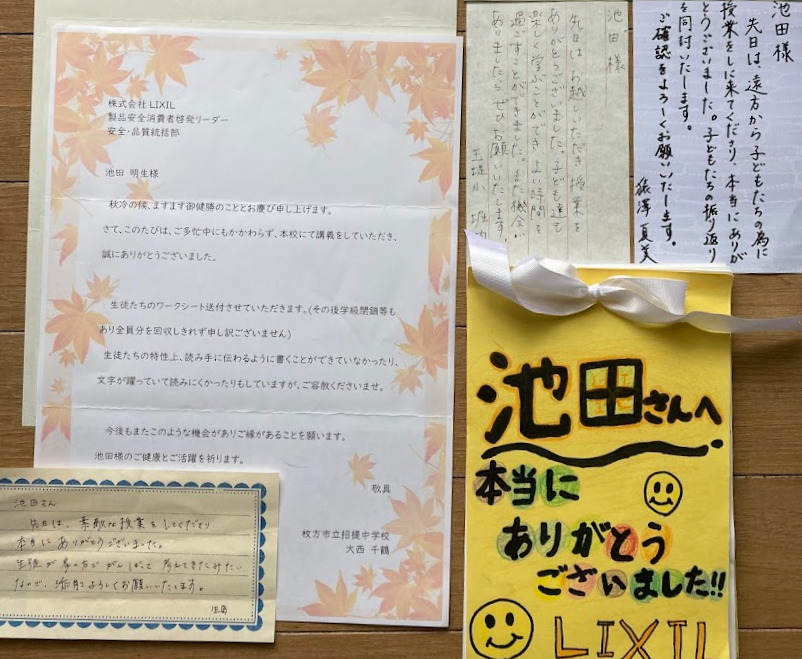 株式会社 LIXIL
製品安全消費者啓発リーダー
安全・品質統括部
池田 明生様
秋冷の候、ますます御健勝のこととお慶び申し上げます。
さて、このたびは、ご多忙中にもかかわらず、本校にて講義をしていただき、
誠にありがとうございました。
生徒たちのワークシート送付させていただきます。(その後学級閉鎖等も
あり全員分を回収しきれず申し訳ございません)
生徒たちの特性上、読み手に伝わるように書くことができていなかったり、
文字が躍っていて読みにくかったりもしていますが、ご容赦くださいませ。
今後もまたこのような機会がありご縁があることを願います。
池田様のご健康とご活躍を祈ります。
敬具
枚方市立招提中学校
大西 千鶴
池田様
先日はお越しいただき授業を
ありがとうございました。子ども達も
楽しく学ぶことができ、よい時間を
過ごすことができました。また機会が
ありましたら ぜひお願いいたします。
池田様
先日は、遠方から子どもたちの為に
授業をしに来てくださり、本当にありが
とうございました。子どもたちの振り返り
を同封いたします。
ご確認をよろしくお願いいたします。
夏美
池田さんへ
本当に
ありがとう
ございました!!
LIXIL
池田さん
先日は、素敵な授業をしてくださり
本当にありがとうございました。
生徒が家の方でがんばって 考えてきたみたい
なので、添削よろしくお願いいたします。